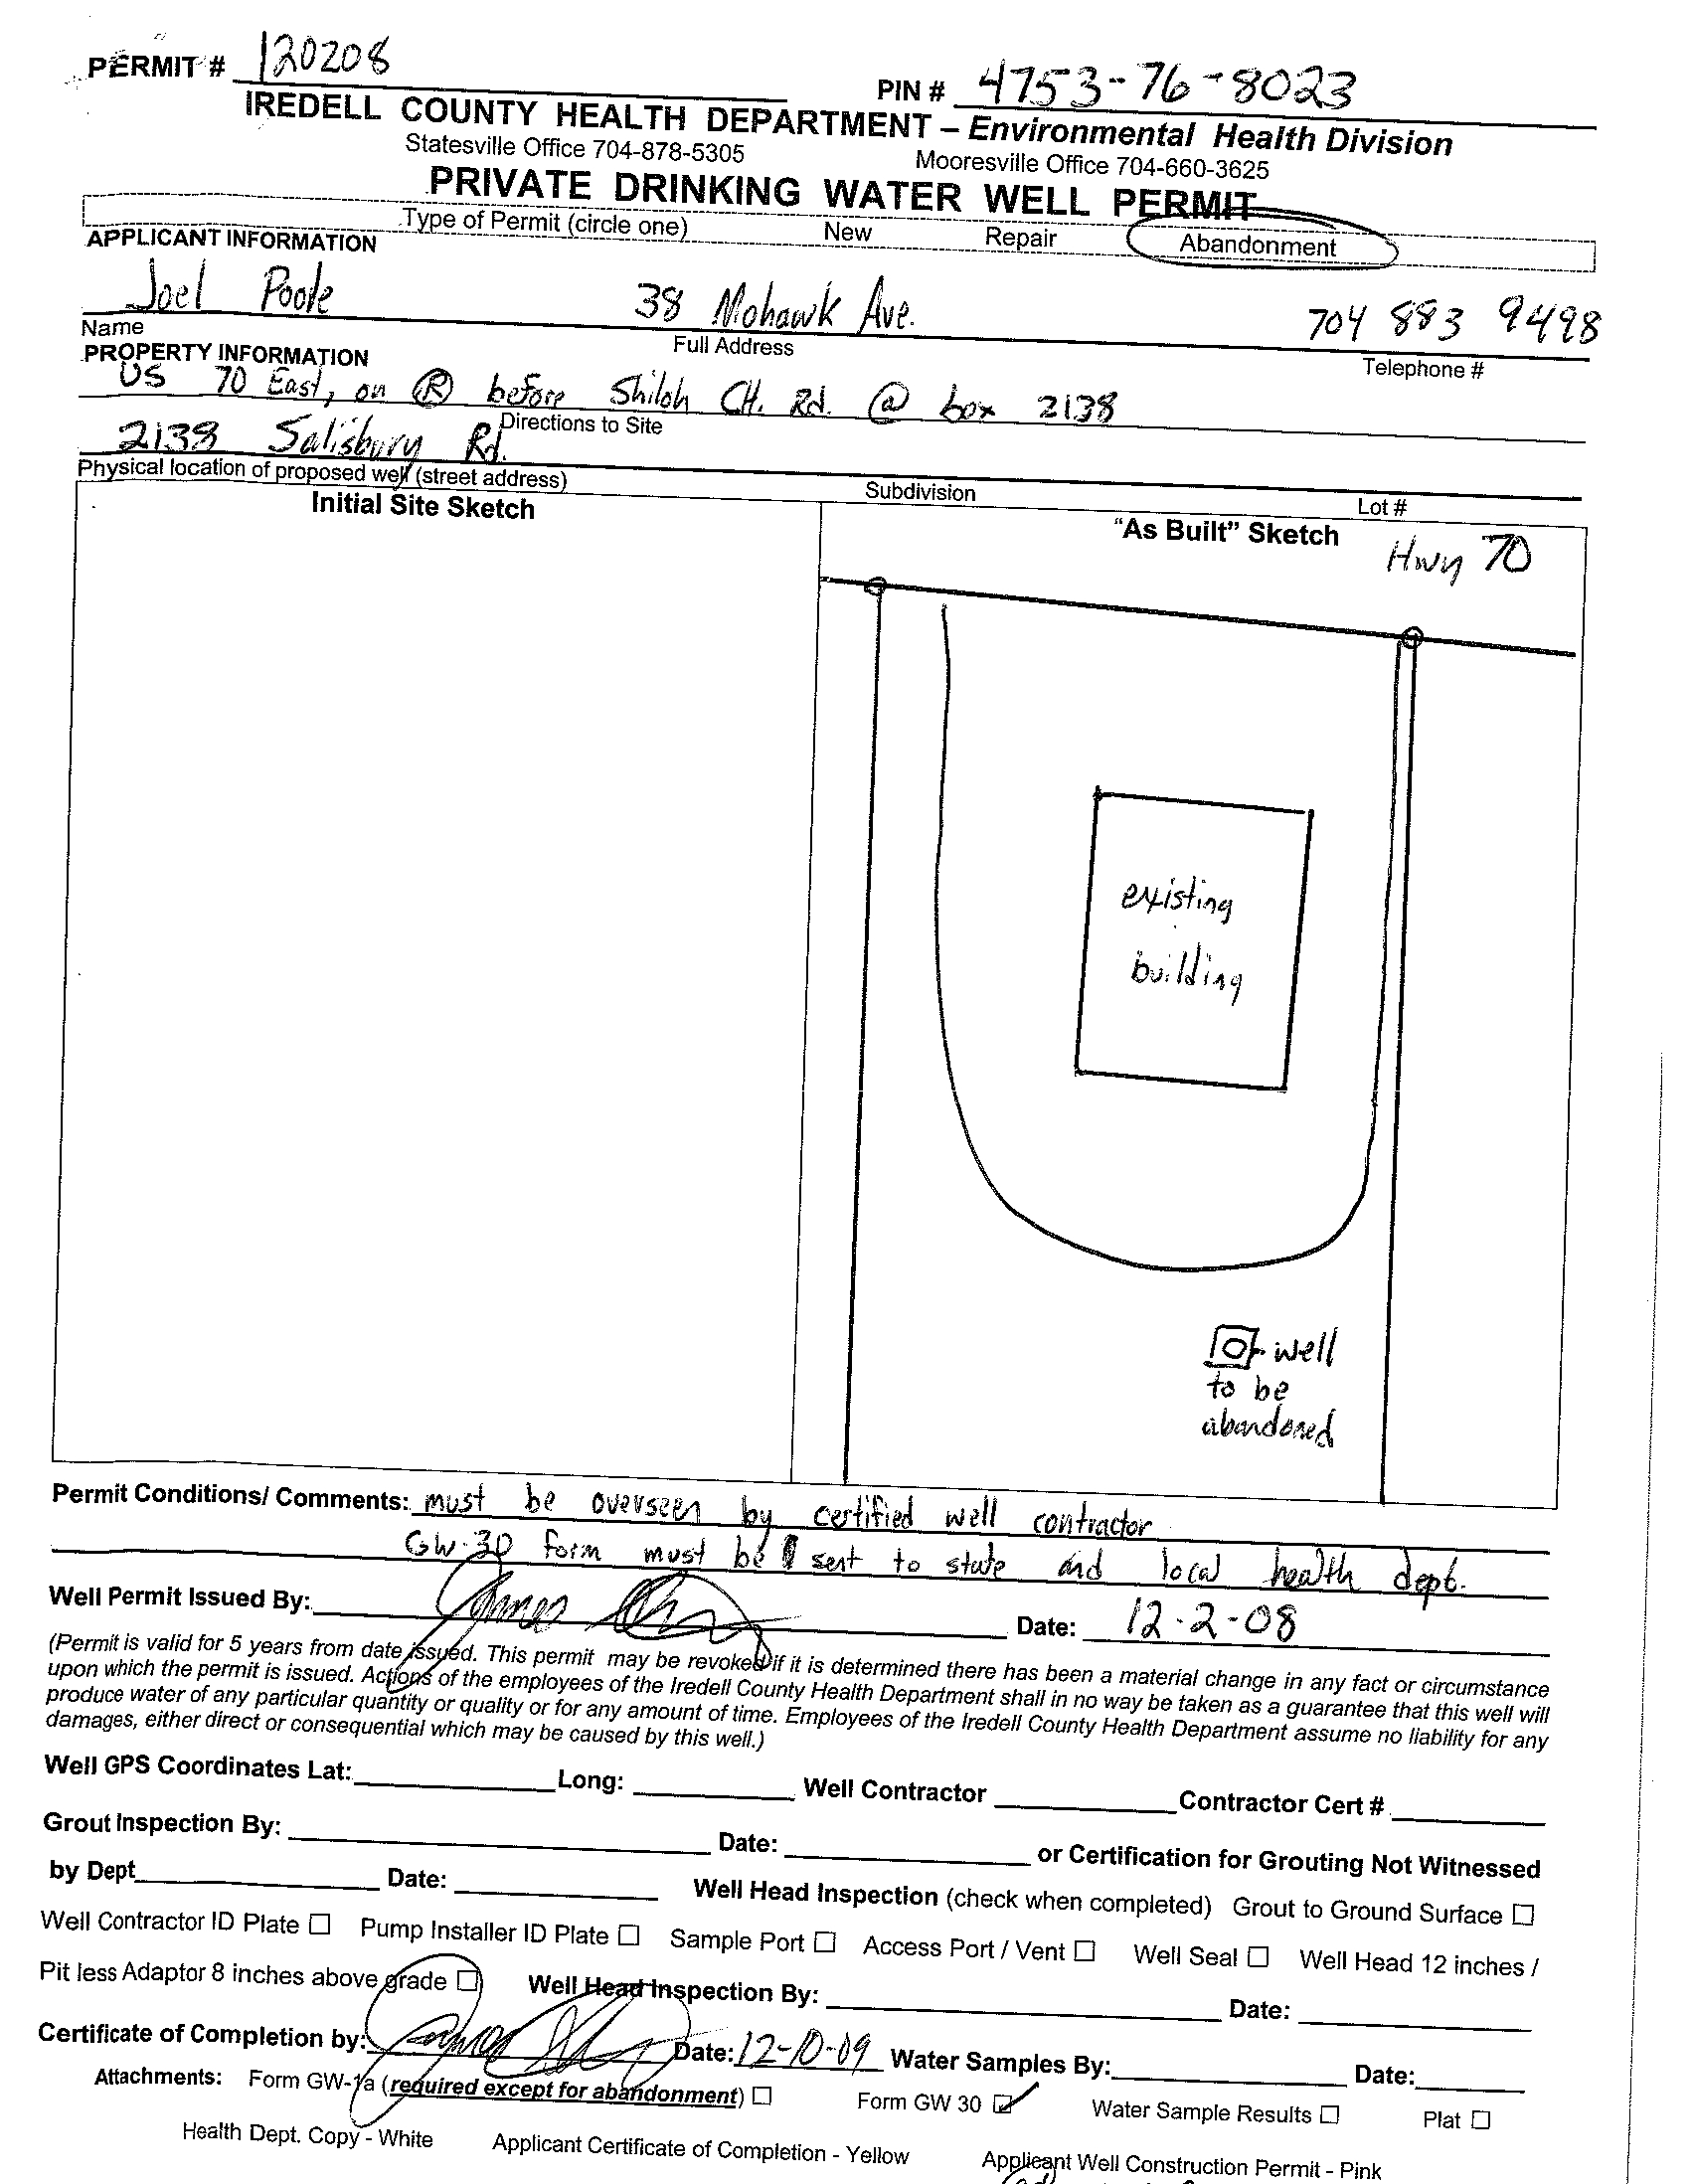 PERMIT # 120208
PIN # 4753-76-8023
IREDELL COUNTY HEALTH DEPARTMENT – Environmental Health Division
Statesville Office 704-878-5305 Mooresville Office 704-660-3625
PRIVATE DRINKING WATER WELL PERMIT
Type of Permit (circle one) New Repair Abandonment
APPLICANT INFORMATION
Joel Poole 38 Mohawk Ave. 704 883 9498
Name Full Address Telephone #
PROPERTY INFORMATION
US 70 East, on R before Shiloh CH. Rd. @ box 2138
Directions to Site
2138 Salisbury Rd.
Physical location of proposed well (street address) Subdivision Lot #
Initial Site Sketch
"As Built" Sketch
Hwy 70
existing
building
well
to be
abandoned
Permit Conditions/ Comments: must be overseen by certified well contractor
GW-30 form must be sent to state and local health dept.
Well Permit Issued By: Date: 12-2-08
(Permit is valid for 5 years from date issued. This permit may be revoked if it is determined there has been a material change in any fact or circumstance
upon which the permit is issued. Actions of the employees of the Iredell County Health Department shall in no way be taken as a guarantee that this well will
produce water of any particular quantity or quality or for any amount of time. Employees of the Iredell County Health Department assume no liability for any
damages, either direct or consequential which may be caused by this well.)
Well GPS Coordinates Lat: Long: Well Contractor Contractor Cert #
Grout Inspection By: Date: or Certification for Grouting Not Witnessed
by Dept Date: Well Head Inspection (check when completed) Grout to Ground Surface ☐
Well Contractor ID Plate ☐ Pump Installer ID Plate ☐ Sample Port ☐ Access Port / Vent ☐ Well Seal ☐ Well Head 12 inches /
Pit less Adaptor 8 inches above grade ☐ Well Head Inspection By: Date:
Certificate of Completion by: Date: 12-10-09 Water Samples By: Date:
Attachments: Form GW-1a (required except for abandonment) ☐ Form GW 30 ☑ Water Sample Results ☐ Plat ☐
Health Dept. Copy - White Applicant Certificate of Completion - Yellow Applicant Well Construction Permit - Pink